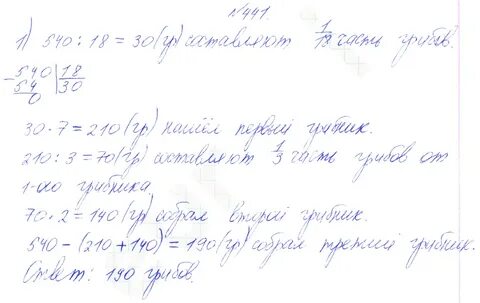 №441.
1) 540 : 18 = 30 (гр) составляют 1/18 часть грибов.
540 | 18
54 | 30
0
30 · 7 = 210 (гр) нашёл первый грибник.
210 : 3 = 70 (гр) составляют 1/3 часть грибов от
1-ого грибника.
70 · 2 = 140 (гр) собрал второй грибник.
540 - (210 + 140) = 190 (гр) собрал третий грибник.
Ответ: 190 грибов.